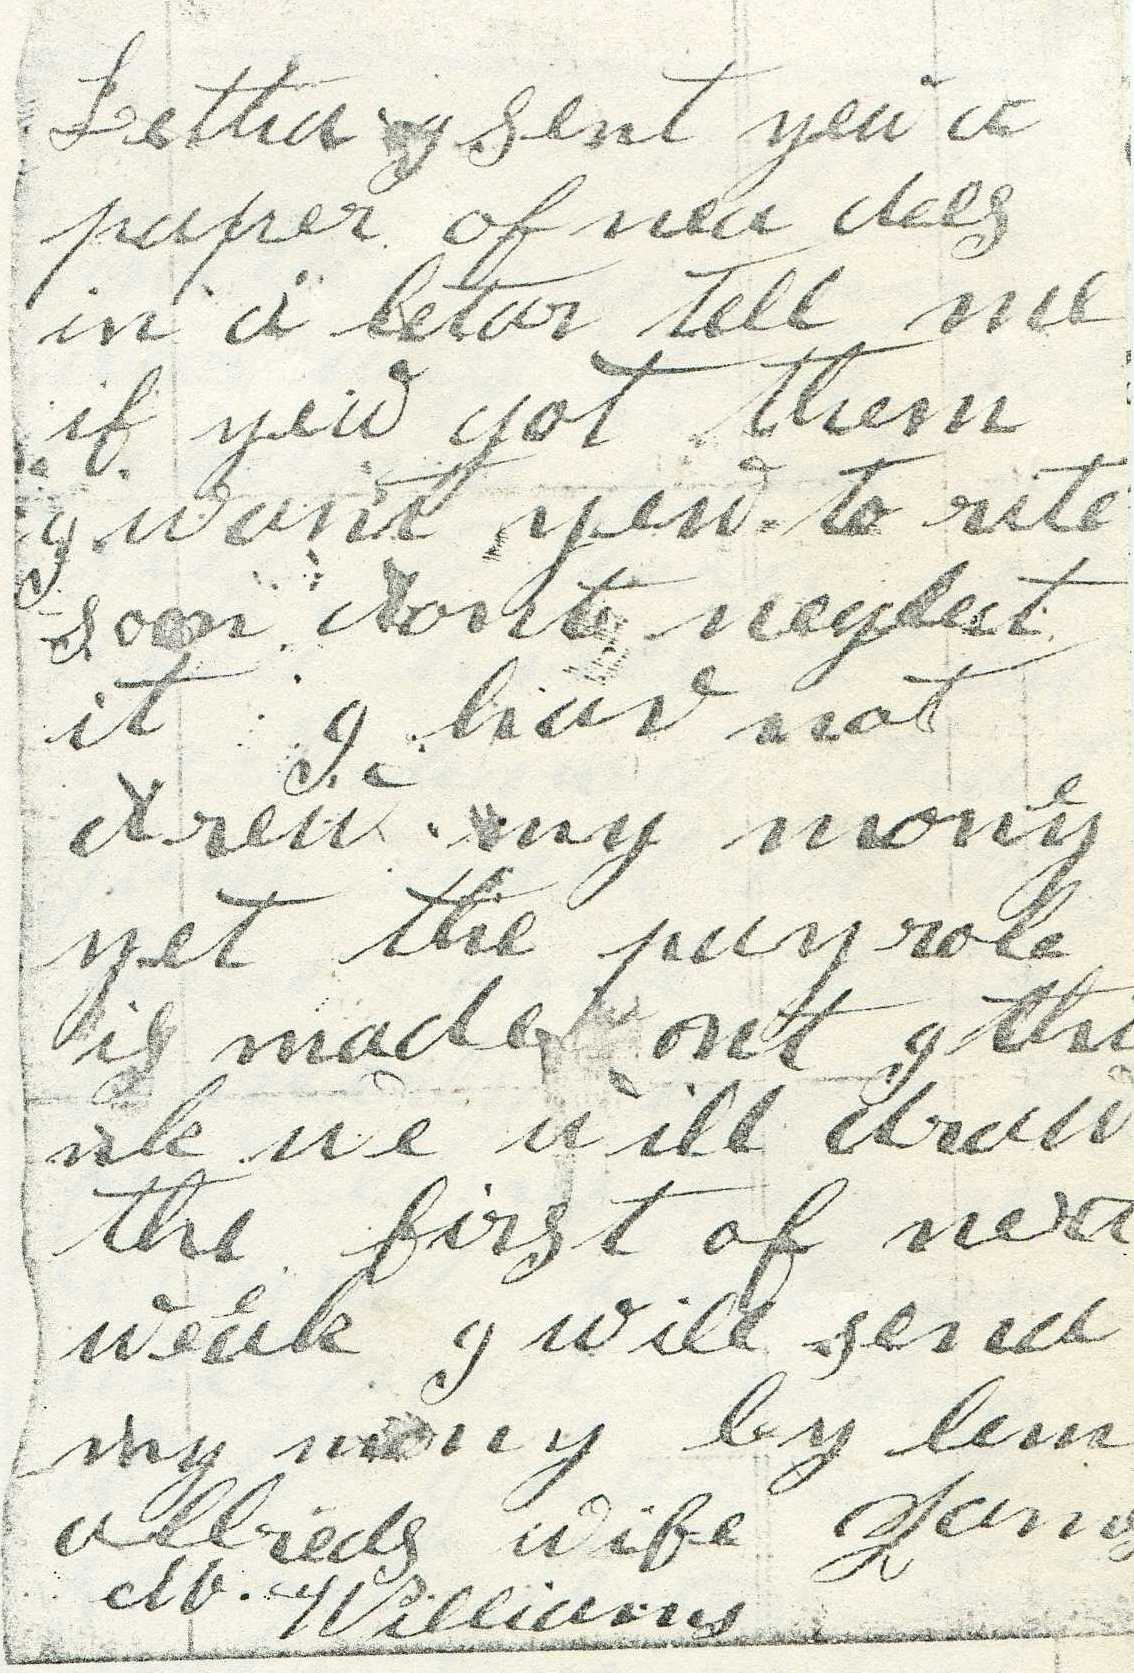 Letha y sent yeu a
paper of nea dels
in a letar tell me
if yew got them
y want yew to rite
soon dont neglect
it y hav not
drew my money
yet the payrole
is made out y thi
nk we will draw
the first of next
weak y will send
my mony by lem
allreds wife
M. Williams